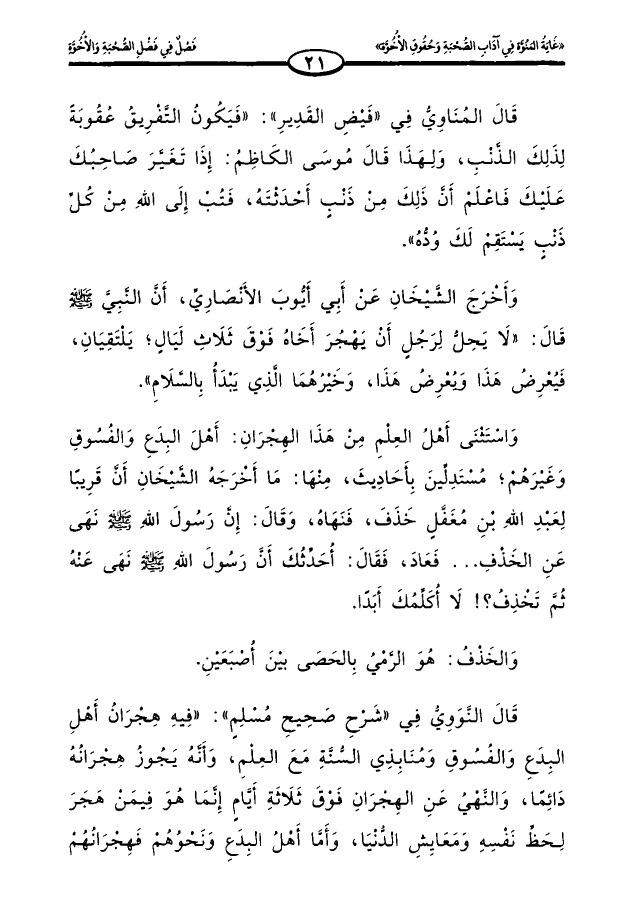 «غَايَةُ المَنُوَّة فِي آدَابِ الصُّحْبَةِ وَحُقُوقِ الأُخُوَّة»
فَصْلٌ فِي فَضْلِ الصُّحْبَةِ وَالأُخُوَّةِ
٢١
قَالَ المُنَاوِيُّ فِي «فَيْضِ القَدِيرِ»: «فَيَكُونُ التَّفْرِيقُ عُقُوبَةً
لِذَلِكَ الذَّنْبِ، وَلِهَذَا قَالَ مُوسَى الكَاظِمُ: إِذَا تَغَيَّرَ صَاحِبُكَ
عَلَيْكَ فَاعْلَمْ أَنَّ ذَلِكَ مِنْ ذَنْبٍ أَحْدَثْتَهُ، فَتُبْ إِلَى اللهِ مِنْ كُلِّ
ذَنْبٍ يَسْتَقِمْ لَكَ وُدُّهُ».
وَأَخْرَجَ الشَّيْخَانِ عَنْ أَبِي أَيُّوبَ الأَنْصَارِيِّ، أَنَّ النَّبِيَّ ﷺ
قَالَ: «لَا يَحِلُّ لِرَجُلٍ أَنْ يَهْجُرَ أَخَاهُ فَوْقَ ثَلَاثِ لَيَالٍ؛ يَلْتَقِيَانِ،
فَيُعْرِضُ هَذَا وَيُعْرِضُ هَذَا، وَخَيْرُهُمَا الَّذِي يَبْدَأُ بِالسَّلَامِ».
وَاسْتَثْنَى أَهْلُ العِلْمِ مِنْ هَذَا الهِجْرَانِ: أَهْلَ البِدَعِ وَالفُسُوقِ
وَغَيْرَهُمْ؛ مُسْتَدِلِّينَ بِأَحَادِيثَ، مِنْهَا: مَا أَخْرَجَهُ الشَّيْخَانِ أَنَّ قَرِيبًا
لِعَبْدِ اللهِ بْنِ مُغَفَّلٍ خَذَفَ، فَنَهَاهُ، وَقَالَ: إِنَّ رَسُولَ اللهِ ﷺ نَهَى
عَنِ الخَذْفِ... فَعَادَ، فَقَالَ: أُحَدِّثُكَ أَنَّ رَسُولَ اللهِ ﷺ نَهَى عَنْهُ
ثُمَّ تَخْذِفُ؟! لَا أُكَلِّمُكَ أَبَدًا.
وَالخَذْفُ: هُوَ الرَّمْيُ بِالحَصَى بَيْنَ أُصْبَعَيْنِ.
قَالَ النَّوَوِيُّ فِي «شَرْحِ صَحِيحِ مُسْلِمٍ»: «فِيهِ هِجْرَانُ أَهْلِ
البِدَعِ وَالفُسُوقِ وَمُنَابِذِي السُّنَّةِ مَعَ العِلْمِ، وَأَنَّهُ يَجُوزُ هِجْرَانُهُ
دَائِمًا، وَالنَّهْيُ عَنِ الهِجْرَانِ فَوْقَ ثَلَاثَةِ أَيَّامٍ إِنَّمَا هُوَ فِيمَنْ هَجَرَ
لِحَظِّ نَفْسِهِ وَمَعَايِشِ الدُّنْيَا، وَأَمَّا أَهْلُ البِدَعِ وَنَحْوُهُمْ فَهِجْرَانُهُمْ